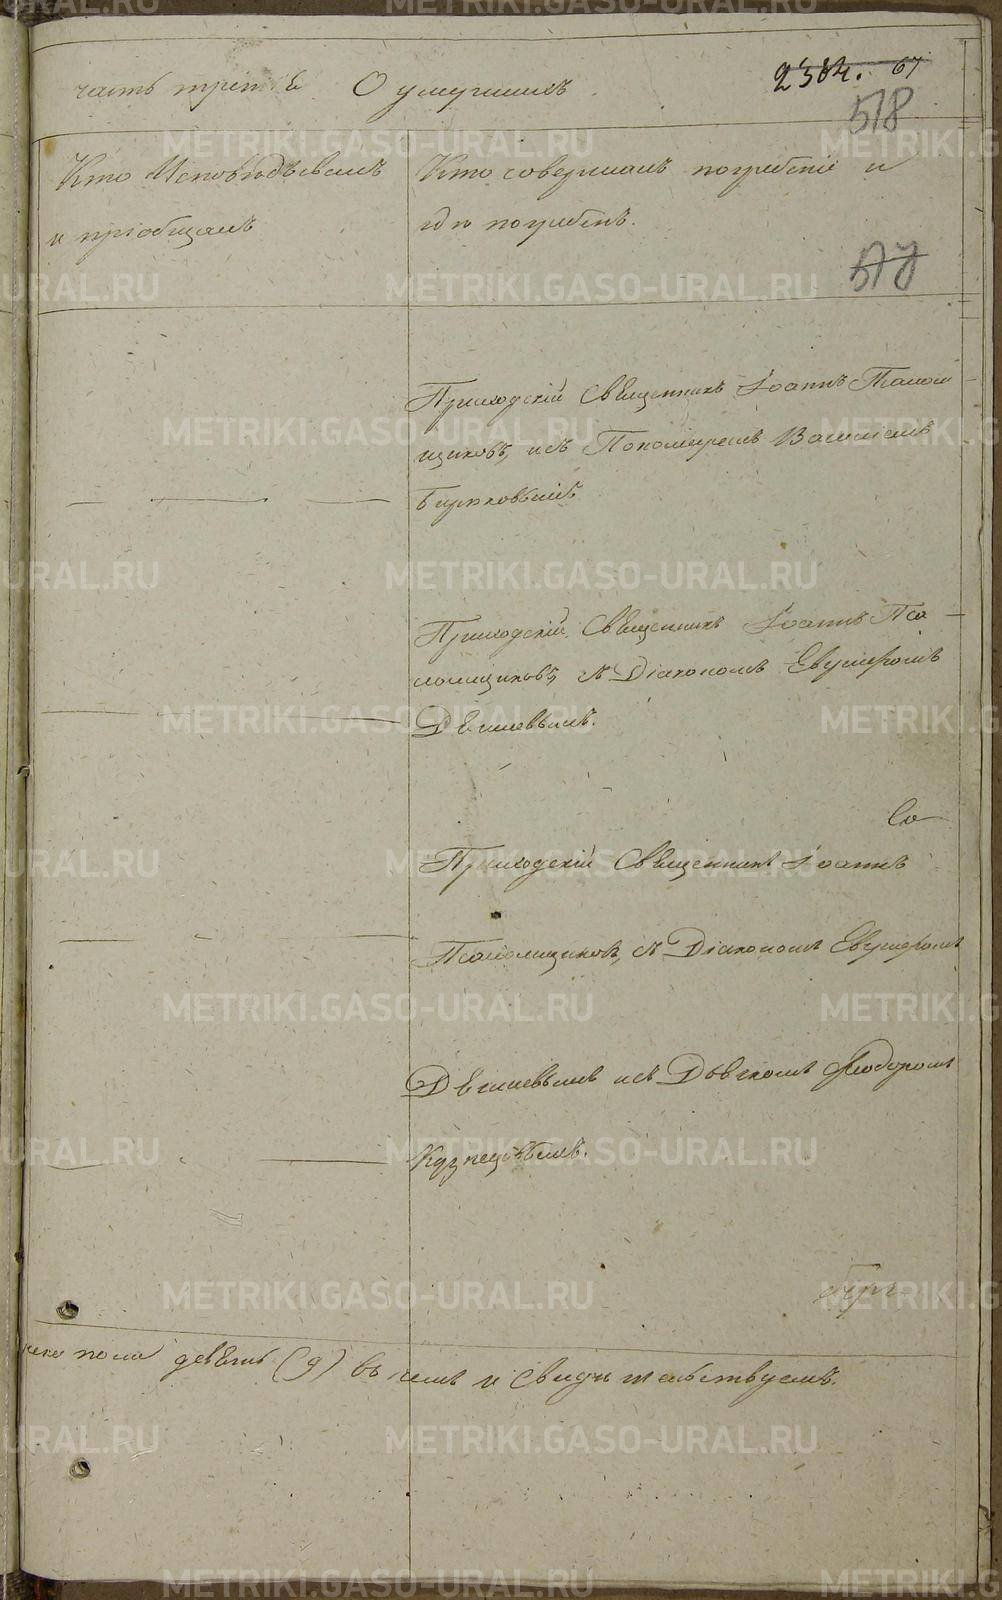 часть третiя О умершихъ
2384. 67
518
Кто Исповѣдѣвалъ
и прiобщалъ
Кто совершалъ погребенiе и
гдѣ погребенъ.
517
Приходскiй Священникъ Iоаннъ
щиковъ, и съ Пономаремъ Василiемъ
Бирюковымъ
Приходскiй Священникъ Iоаннъ Псо
ломщиковъ, съ Дiакономъ Евгмефомъ
Дѣгшевымъ.
Со
Приходскiй Священникъ Iоаннъ
Псоломщиковъ, съ Дiакономъ
и съ Дьячкомъ Ѳеодоромъ
Кузнецовымъ.
пола девѣть (9) въ чемъ и Свидѣтельствуемъ.
METRIKI.GASO-URAL.RU